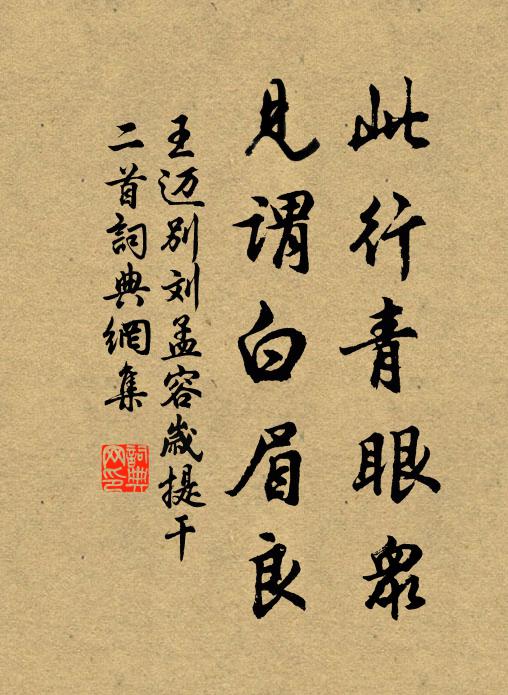 此行青眼眾
見謂白眉良
王迈别刘孟容崴提干
二首詞典網集
詞典網印